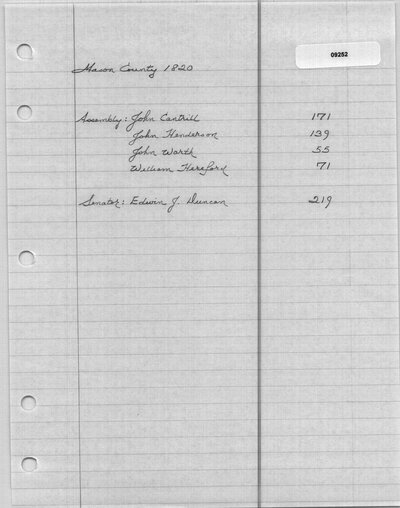 09252
Mason County 1820
Assembly: John Cantrill 171
John Henderson 139
John Warth 55
William Hereford 71
Senator: Edwin J. Duncan 219